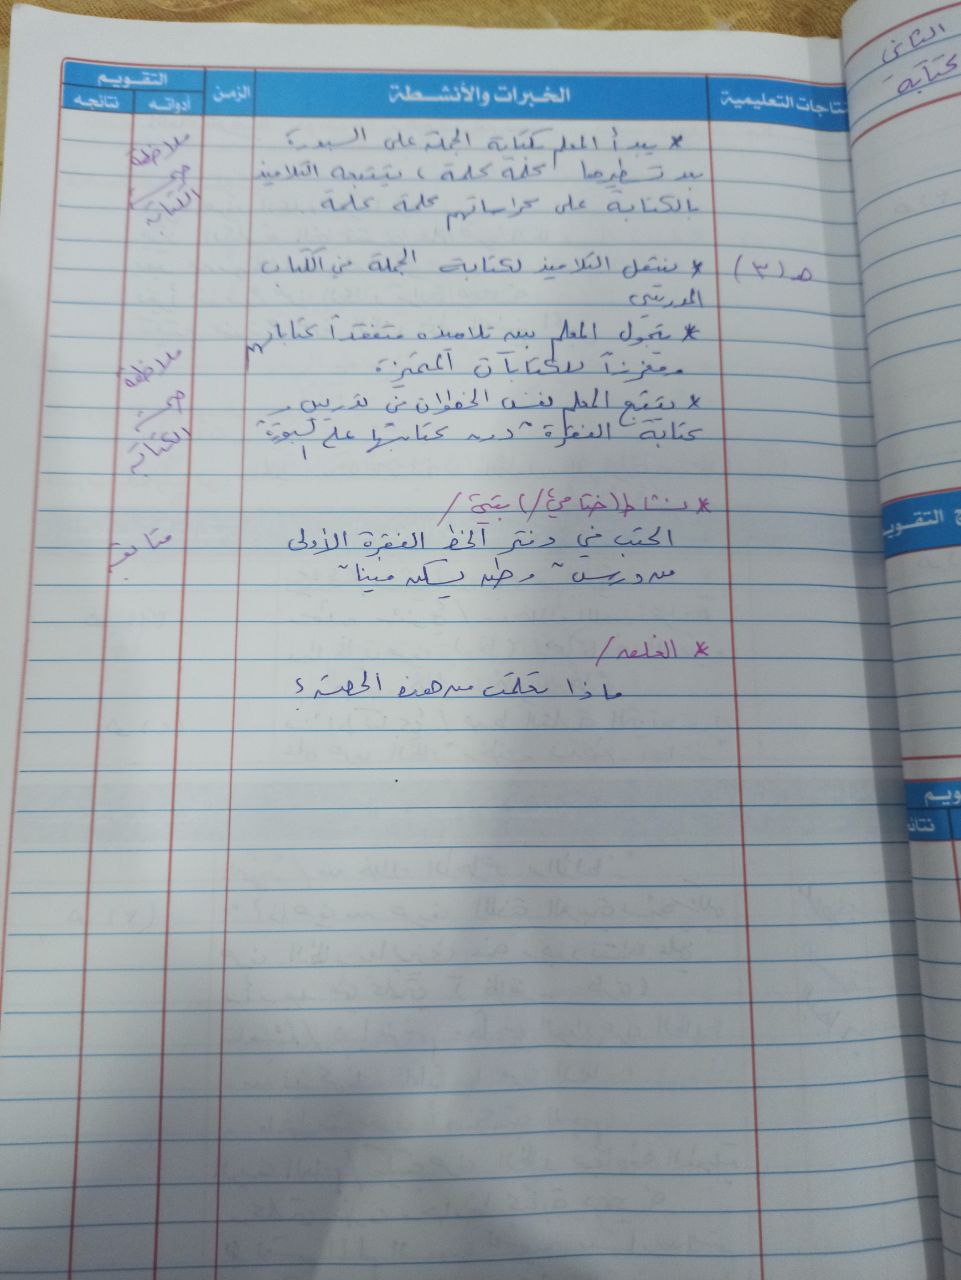 الثاني
كتابة
النتاجات التعليمية
الخبرات والأنشطة
الزمن
التقويم
أدواته
نتائجه
* يبدأ المعلم بكتابة الجملة على السبورة
بعد تسطيرها كلمة كلمة، يتبعه التلاميذ
بالكتابة على كراساتهم كلمة كلمة
ملاحظة
صحة
الكتابة
هـ (٣)
* ينتقل التلاميذ لكتابة الجملة من الكتاب
المدرسي
* يتجول المعلم بين تلاميذه متفقداً كتاباتهم
ومعززاً للكتابات المتميزة
ملاحظة
* يتبع المعلم نفس الخطوات في تدريس
كتابة الفقرة " دون كتابتها على السبورة"
صحة
الكتابة
* نشاط (ختامي/) بيتي/
اكتب في دفتر الخط الفقرة الأولى
من درس " وطن يسكن فينا "
متابعة
* الغلق/
ماذا تعلمت من هذه الحصة ؟
التقويم
نتائ